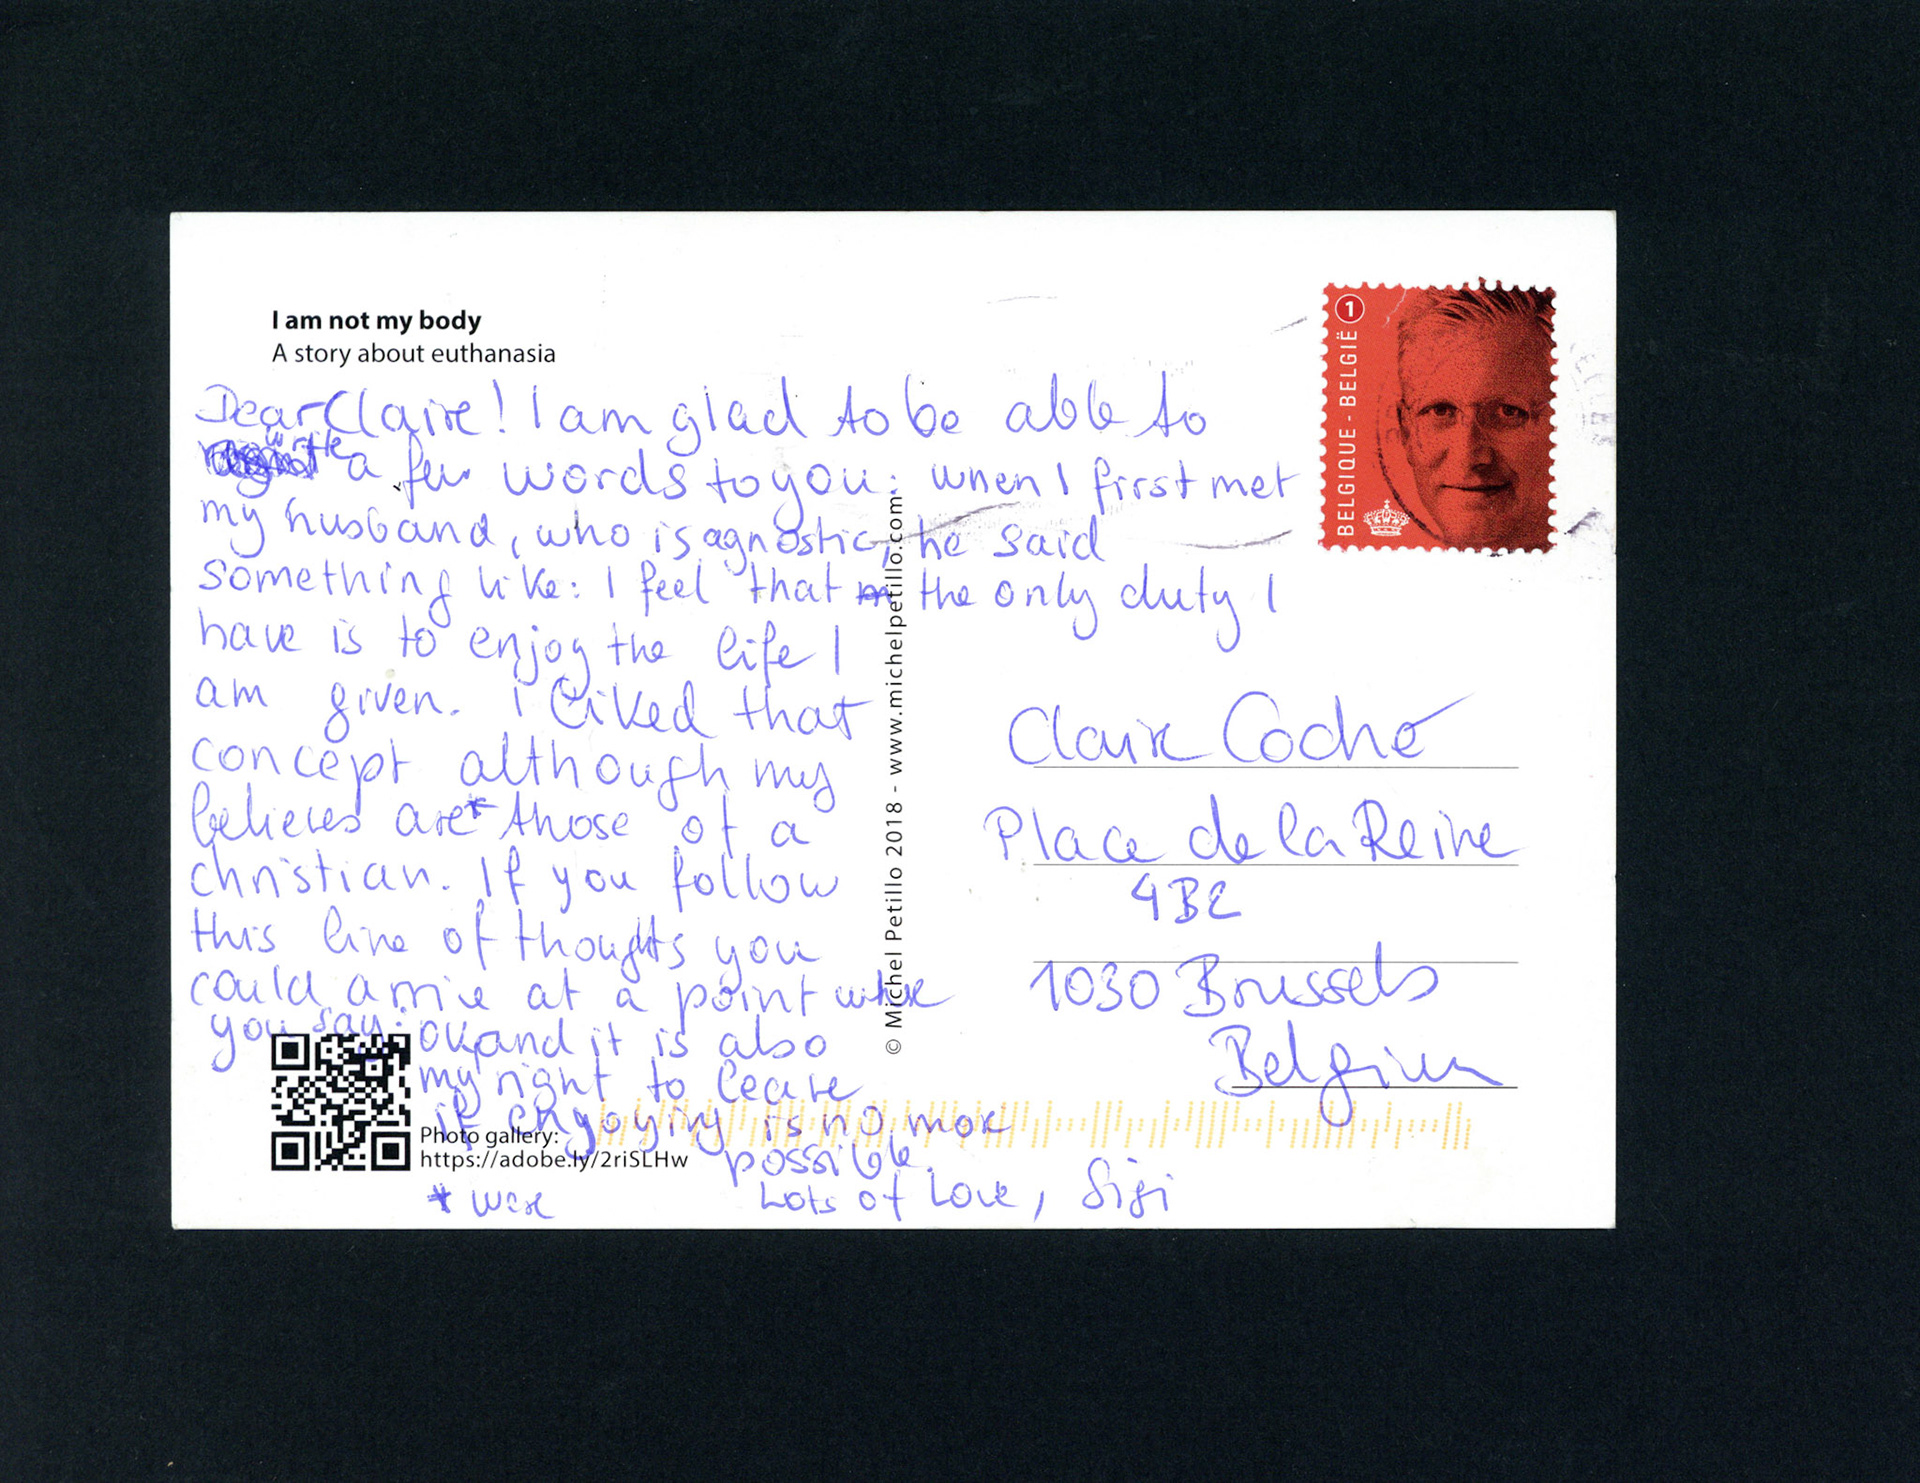 I am not my body
A story about euthanasia
1
BELGIQUE - BELGIË
Dear Claire! I am glad to be able to
write a few words to you: when I first met
my husband, who is agnostic, he said
something like: I feel that the only duty I
have is to enjoy the life I
am given. I liked that
concept although my
believes are* those of a
christian. If you follow
this line of thoughts you
could arrive at a point where
you say: ok and it is also
my right to leave
if engyoying is no more
possible.
* were
Lots of Love, Sigi
Photo gallery:
https://adobe.ly/2riSLHw
© Michel Petillo 2018 - www.michelpetillo.com
Claire Coché
Place de la Reine
4BE
1030 Brussels
Belgium